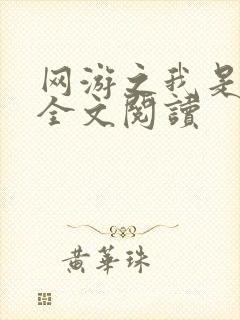 网游之我是
全文閱讀
黄華珠